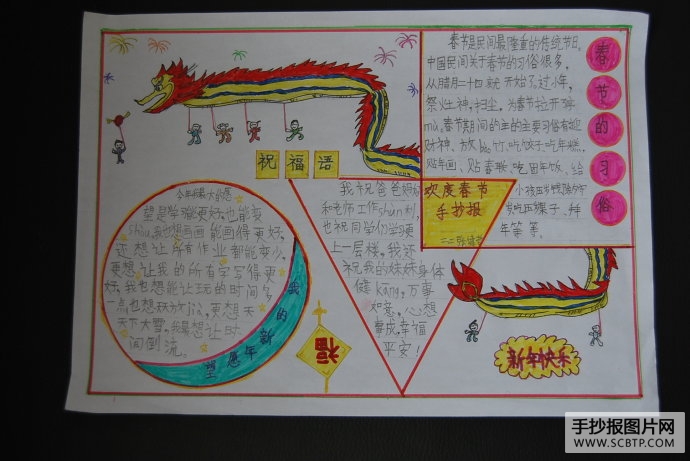 春节的习俗
春节是民间最隆重的传统节日。
中国民间关于春节的习俗很多,
从腊月二十四就开始了过小年,
祭火土神,扫尘,为春节拉开序
mù。春节期间的主的主要习俗有迎
财神、放鞭竹、吃饺子吃年糕、
贴年画、贴春联、吃团年饭、给
年等等。
祝福语
我祝爸爸妈妈
和老师工作shun利,
也祝同学们学习更
上一层楼,我还
祝我的妹妹身体
健kang,万事
如意,心想
事成,幸福
平安!
欢度春节
手抄报
望是学习更好,也能变
画画能画得更好,
还想让所有作业都能变少,
更想让我的所有字写得更
好,我也想能让玩的时间多
一点也想天天放jià,更想天
天下大雪,我最想让时
间倒流。
我的新年愿望
福
新年快乐
手抄报图片网
WWW.SCBTP.COM